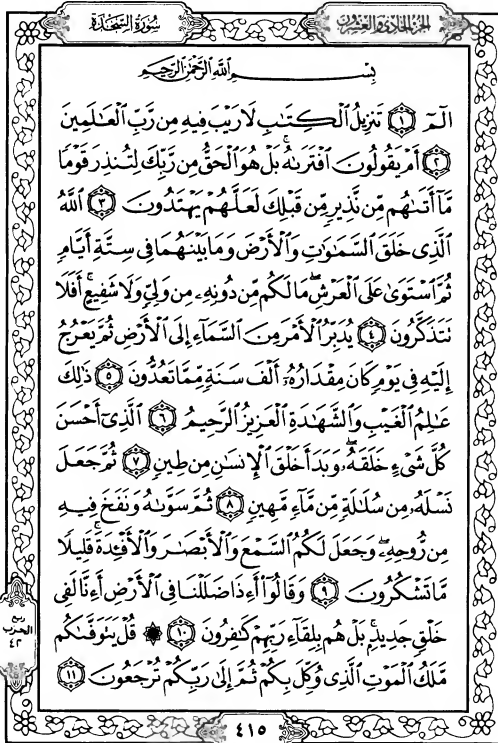 سُورَةُ السَّجْدَةِ
الجُزْءُ الحَادِي وَالعِشْرُونَ
بِسْمِ ٱللَّهِ ٱلرَّحْمَٰنِ ٱلرَّحِيمِ
الٓمٓ ۝١ تَنزِيلُ ٱلْكِتَٰبِ لَا رَيْبَ فِيهِ مِن رَّبِّ ٱلْعَٰلَمِينَ
۝٢ أَمْ يَقُولُونَ ٱفْتَرَىٰهُ ۚ بَلْ هُوَ ٱلْحَقُّ مِن رَّبِّكَ لِتُنذِرَ قَوْمًا
مَّآ أَتَىٰهُم مِّن نَّذِيرٍ مِّن قَبْلِكَ لَعَلَّهُمْ يَهْتَدُونَ ۝٣ ٱللَّهُ
ٱلَّذِى خَلَقَ ٱلسَّمَٰوَٰتِ وَٱلْأَرْضَ وَمَا بَيْنَهُمَا فِى سِتَّةِ أَيَّامٍ
ثُمَّ ٱسْتَوَىٰ عَلَى ٱلْعَرْشِ ۖ مَا لَكُم مِّن دُونِهِۦ مِن وَلِىٍّ وَلَا شَفِيعٍ ۚ أَفَلَا
تَتَذَكَّرُونَ ۝٤ يُدَبِّرُ ٱلْأَمْرَ مِنَ ٱلسَّمَآءِ إِلَى ٱلْأَرْضِ ثُمَّ يَعْرُجُ
إِلَيْهِ فِى يَوْمٍ كَانَ مِقْدَارُهُۥٓ أَلْفَ سَنَةٍ مِّمَّا تَعُدُّونَ ۝٥ ذَٰلِكَ
عَٰلِمُ ٱلْغَيْبِ وَٱلشَّهَٰدَةِ ٱلْعَزِيزُ ٱلرَّحِيمُ ۝٦ ٱلَّذِىٓ أَحْسَنَ
كُلَّ شَىْءٍ خَلَقَهُۥ ۖ وَبَدَأَ خَلْقَ ٱلْإِنسَٰنِ مِن طِينٍ ۝٧ ثُمَّ جَعَلَ
نَسْلَهُۥ مِن سُلَٰلَةٍ مِّن مَّآءٍ مَّهِينٍ ۝٨ ثُمَّ سَوَّىٰهُ وَنَفَخَ فِيهِ
مِن رُّوحِهِۦ ۖ وَجَعَلَ لَكُمُ ٱلسَّمْعَ وَٱلْأَبْصَٰرَ وَٱلْأَفْـِٔدَةَ ۚ قَلِيلًا
مَّا تَشْكُرُونَ ۝٩ وَقَالُوٓا۟ أَءِذَا ضَلَلْنَا فِى ٱلْأَرْضِ أَءِنَّا لَفِى
خَلْقٍ جَدِيدٍۭ ۚ بَلْ هُم بِلِقَآءِ رَبِّهِمْ كَٰفِرُونَ ۝١٠ ۞ قُلْ يَتَوَفَّىٰكُم
مَّلَكُ ٱلْمَوْتِ ٱلَّذِى وُكِّلَ بِكُمْ ثُمَّ إِلَىٰ رَبِّكُمْ تُرْجَعُونَ ۝١١
ربع
الحزب
٤٢
٤١٥